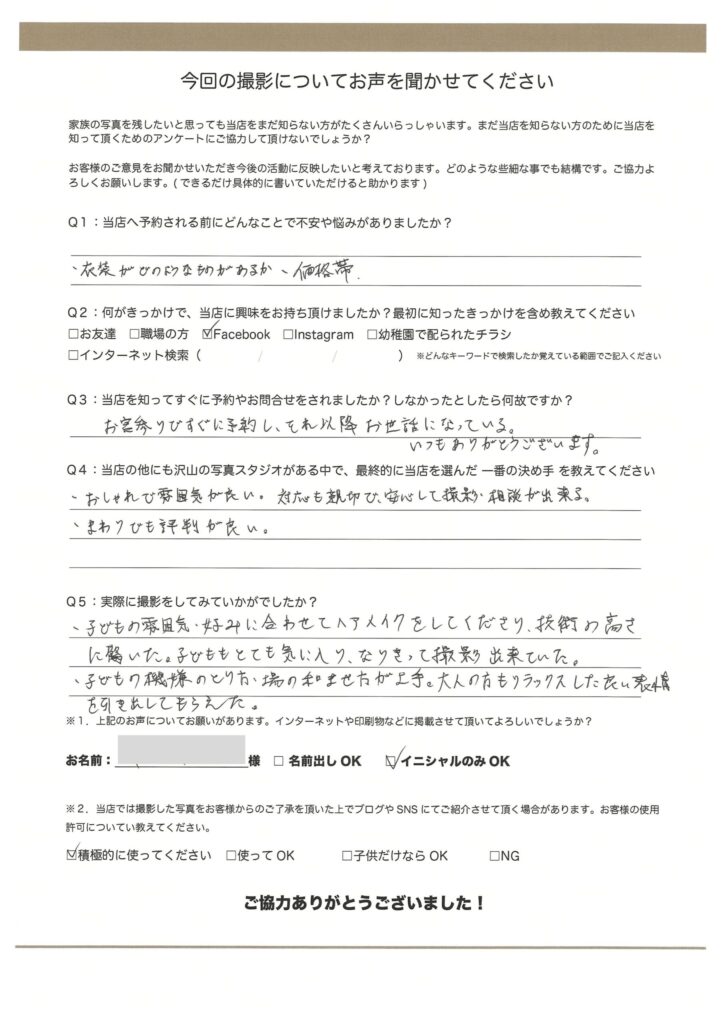 今回の撮影についてお声を聞かせてください
家族の写真を残したいと思っても当店をまだ知らない方がたくさんいらっしゃいます。まだ当店を知らない方のために当店を
知って頂くためのアンケートにご協力して頂けないでしょうか？
お客様のご意見をお聞かせいただき今後の活動に反映したいと考えております。どのような些細な事でも結構です。ご協力よ
ろしくお願いします。( できるだけ具体的に書いていただけると助かります )
Q1：当店へ予約される前にどんなことで不安や悩みがありましたか？
、衣装がどのようなものがあるか、価格帯.
Q2：何がきっかけで、当店に興味をお持ち頂けましたか？最初に知ったきっかけを含め教えてください
□お友達 □職場の方 ☑Facebook □Instagram □幼稚園で配られたチラシ
□インターネット検索（ / / ） ※どんなキーワードで検索したか覚えている範囲でご記入ください
Q3：当店を知ってすぐに予約やお問合せをされましたか？しなかったとしたら何故ですか？
お宮参りですぐに予約し、それ以降お世話になっている。
いつもありがとうございます。
Q4：当店の他にも沢山の写真スタジオがある中で、最終的に当店を選んだ 一番の決め手 を教えてください
・おしゃれで雰囲気が良い。対応も親切で、安心して撮影・相談が出来る。
・まわりでも評判が良い。
Q5：実際に撮影をしてみていかがでしたか？
・子どもの雰囲気・好みに合わせてヘアメイクをしてくださり、技術の高さ
に驚いた。子どももとても気に入り、なりきって撮影出来ていた。
・子どもの機嫌のとり方、場の和ませ方が上手。大人の方もリラックスした良い表情
を引き出してもらえた。
※1．上記のお声についてお願いがあります。インターネットや印刷物などに掲載させて頂いてよろしいでしょうか？
お名前： 様 □ 名前出し OK ☑イニシャルのみ OK
※2．当店では撮影した写真をお客様からのご了承を頂いた上でブログや SNS にてご紹介させて頂く場合があります。お客様の使用
許可についてい教えてください。
☑積極的に使ってください □使って OK □子供だけなら OK □NG
ご協力ありがとうございました！